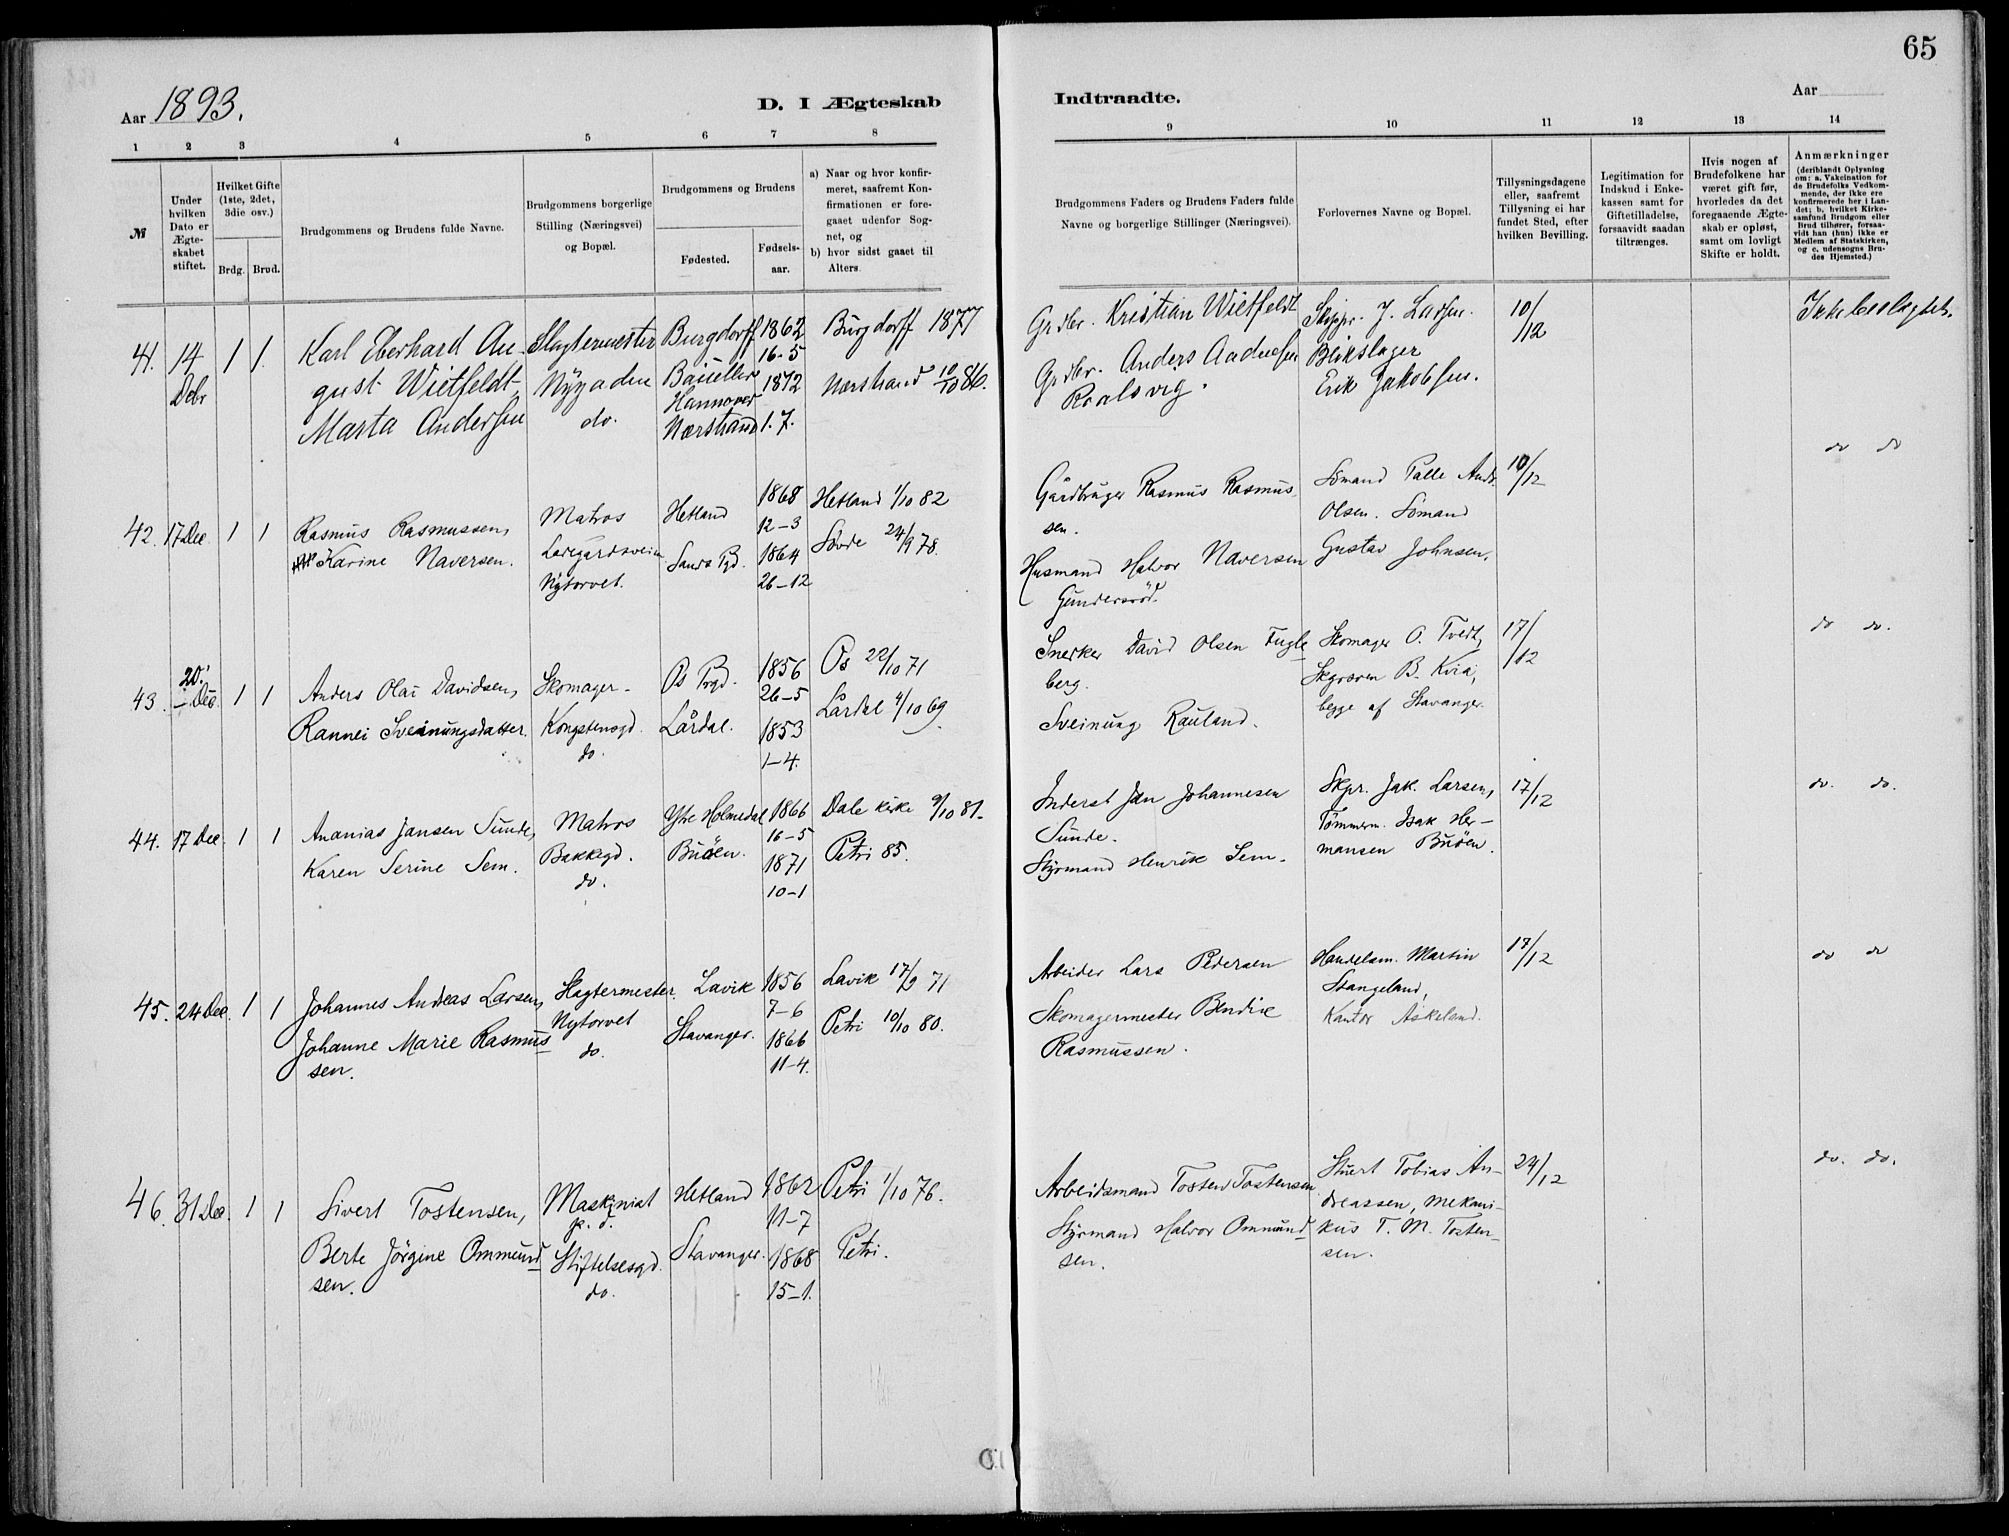 65
Aar 1893.
D. I Ægteskab
Indtraadte.
Aar
1 2 3 4 5 6 7 8
9 10 11 12 13 14
№
Under hvilken Dato er Ægteskabet stiftet.
Hvilket Gifte (1ste, 2det, 3die osv.)
Brdg. Brud.
Brudgommens og Brudens fulde Navne.
Brudgommens borgerlige Stilling (Næringsvei) og Bopæl.
Brudgommens og Brudens
Fødested.
Fødsels-aar.
a) Naar og hvor konfir-
meret, saafremt Kon-
firmationen er fore-
gaaet udenfor Sog-
net, og
b) hvor sidst gaaet til
Alters.
Brudgommens Faders og Brudens Faders fulde
Navne og borgerlige Stillinger (Næringsvei).
Forlovernes Navne og Bopæl.
Tillysningsdagene
eller, saafremt
Tillysning ei har
fundet Sted, efter
hvilken Bevilling.
Legitimation for
Indskud i Enke-
kassen samt for
Giftetilladelse,
forsaavidt saadan
tiltrænges.
Hvis nogen af
Brudefolkene har
været gift før,
hvorledes da det
foregaaende Ægte-
skab er opløst,
samt om lovligt
Skifte er holdt.
Anmærkninger
(deriblandt Oplysning
om: a. Vakcination for
de Brudefolks Vedkom-
mende, der ikke ere
konfirmerede her i Lan-
det; b, hvilket Kirke-
samfund Brudgom eller
Brud tilhører, forsaa-
vidt han (hun) ikke er
Medlem af Statskirken,
og c. udensogns Bru-
des Hjemsted.)
41. 14 Debr 1 1.
Karl Eberhard Au-
gust Wietfeldt,
Marta Andersen
Slagtermester
Nygaden
do.
Burgdorff
Hannover
Nærstrand
1862
16-5
1872
1.7.
Burgdorff 1877
Nærstrand 10/10 86.
Grdbr. Kristian Wietfeldt
Grdbr. Anders Aadnesen
Raalsvig.
Skippr. J. Larsen.
Blikslager
Erik Jakobsen.
10/12
Ikke beslægtet.
42. 17 Dec 1 1
Rasmus Rasmussen,
Karine Naversen.
Matros
Ladegårdsveien
Nytorvet.
Hetland
Sands Pgd.
1868
12-3
1864
26-12
Hetland 1/10 82
Søvde 24/9 78.
Gårdbruger Rasmus Rasmus
sen.
Husmand Halvor Naversen
Gundersrød.
Sømand Palle Andr.
Olsen. Sømand
Gustav Johnsen.
10/12
do do
43. 20. - Dec. 1 1
Anders Olai Davidsen,
Rannei Sveinungsdatter.
Skomager-
Kongstensgd.
do.
Os Prgd.
Lårdal.
1856
26-5
1853
1-4.
Os 22/10 71
Lårdal 4/10 69.
Snerker David Olsen Fugle
berg.
Sveinung Rauland.
Skomager O. Tvedt,
B. Kvia,
begge af Stavanger.
17/12
do do.
44. 17 Dec. 1 1
Ananias Jansen Sunde,
Karen Serine Sem.
Matros
Bakkegd.
do.
Ytre Holmedal
Buøen.
1866
16-5
1871
10-1
Dale kirke 9/10 81.
Petri 85.
Inderst Jan Johannesen
Sunde.
Styrmand Henrik Sem.
Skpr. Jak. Larsen,
Tømmerm. Isak Her-
mansen Buøen.
17/12
do. do.
45. 24 Dec. 1 1
Johannes Andreas Larsen,
Johanne Marie Rasmus
sen.
Slagtermester
Nytorvet
do.
Lavik
Stavanger.
1856
7-6
1866
11-4.
Lavik 17/9 71
Petri 10/10 80.
Arbeider Lars Pedersen
Skomagermester Bendix
Rasmussen.
Handelsm. Martin
Stangeland,
Kantor Askeland.
17/12
do do
46. 31 Dec. 1 1
Sivert Tostensen,
Berte Jörgine Ommund
sen.
Maskinist
p. d.
Stiftelsesgd.
do.
Hetland
Stavanger.
1862
11-7
1868
15-1.
Petri 1/10 76.
Petri.
Arbeidsmand Tosten Tostensen
Styrmand Halvor Ommund
sen.
Stuert Tobias An-
dreassen, Mekani-
kus T. M. Tosten-
sen.
24/12
do. do.